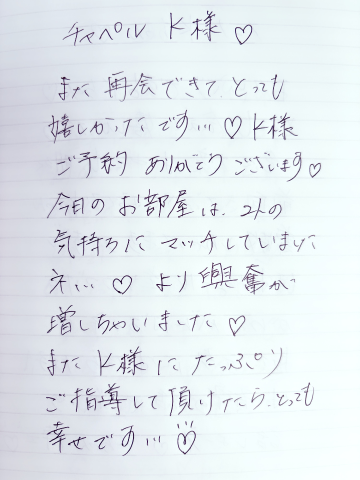 チャペル K様♡
また 再会できて、とっても
嬉しかったです…♡ K様
ご予約 ありがとうございます♡
今日の お部屋は、2人の
気持ちに マッチしていました
ネ…♡ より 興奮が
増しちゃいました♡
また K様に たっぷり
ご指導して頂けたら、とっても
幸せです…♡